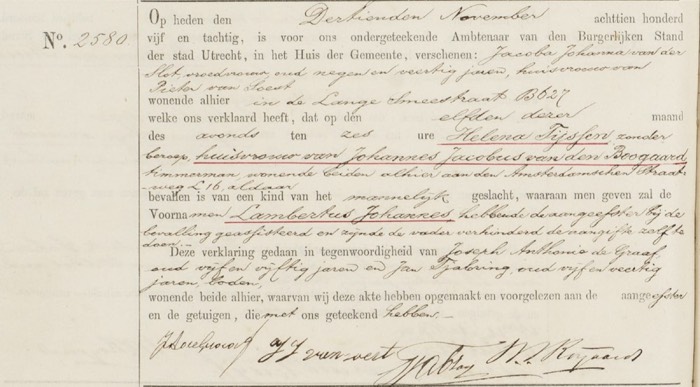 Nº. 2580
Op heden den Dertienden November achttien honderd
vijf en tachtig, is voor ons ondergeteekende Ambtenaar van den Burgerlijken Stand
der stad Utrecht, in het Huis der Gemeente, verschenen: Jacoba Johanna van der
Slot vroedvrouw, oud negen en veertig jaren, huisvrouw van
Pieter van Soest
wonende alhier in de Lange Smeestraat B627
welke ons verklaard heeft, dat op den elfden dezer maand
des avonds ten zes ure Helena Tijssen, zonder
beroep, huisvrouw van Johannes Jacobus van den Boogaard,
timmerman wonende beiden alhier aan den Amsterdamschen Straat-
weg L 16, aldaar
bevallen is van een kind van het mannelijk geslacht, waaraan men geven zal de
Voornamen Lambertus Johannes hebbende de aangeefster bij de
bevalling geassisteerd en zijnde de vader verhinderd de aangifte zelf te
doen. —
Deze verklaring gedaan in tegenwoordigheid van Joseph Anthonie de Graaf,
oud vijf en vijftig jaren en Jan oud vijf en veertig
jaren, boden,
wonende beide alhier, waarvan wij deze akte hebben opgemaakt en voorgelezen aan de aangeefster
en de getuigen, die met ons geteekend hebben. —